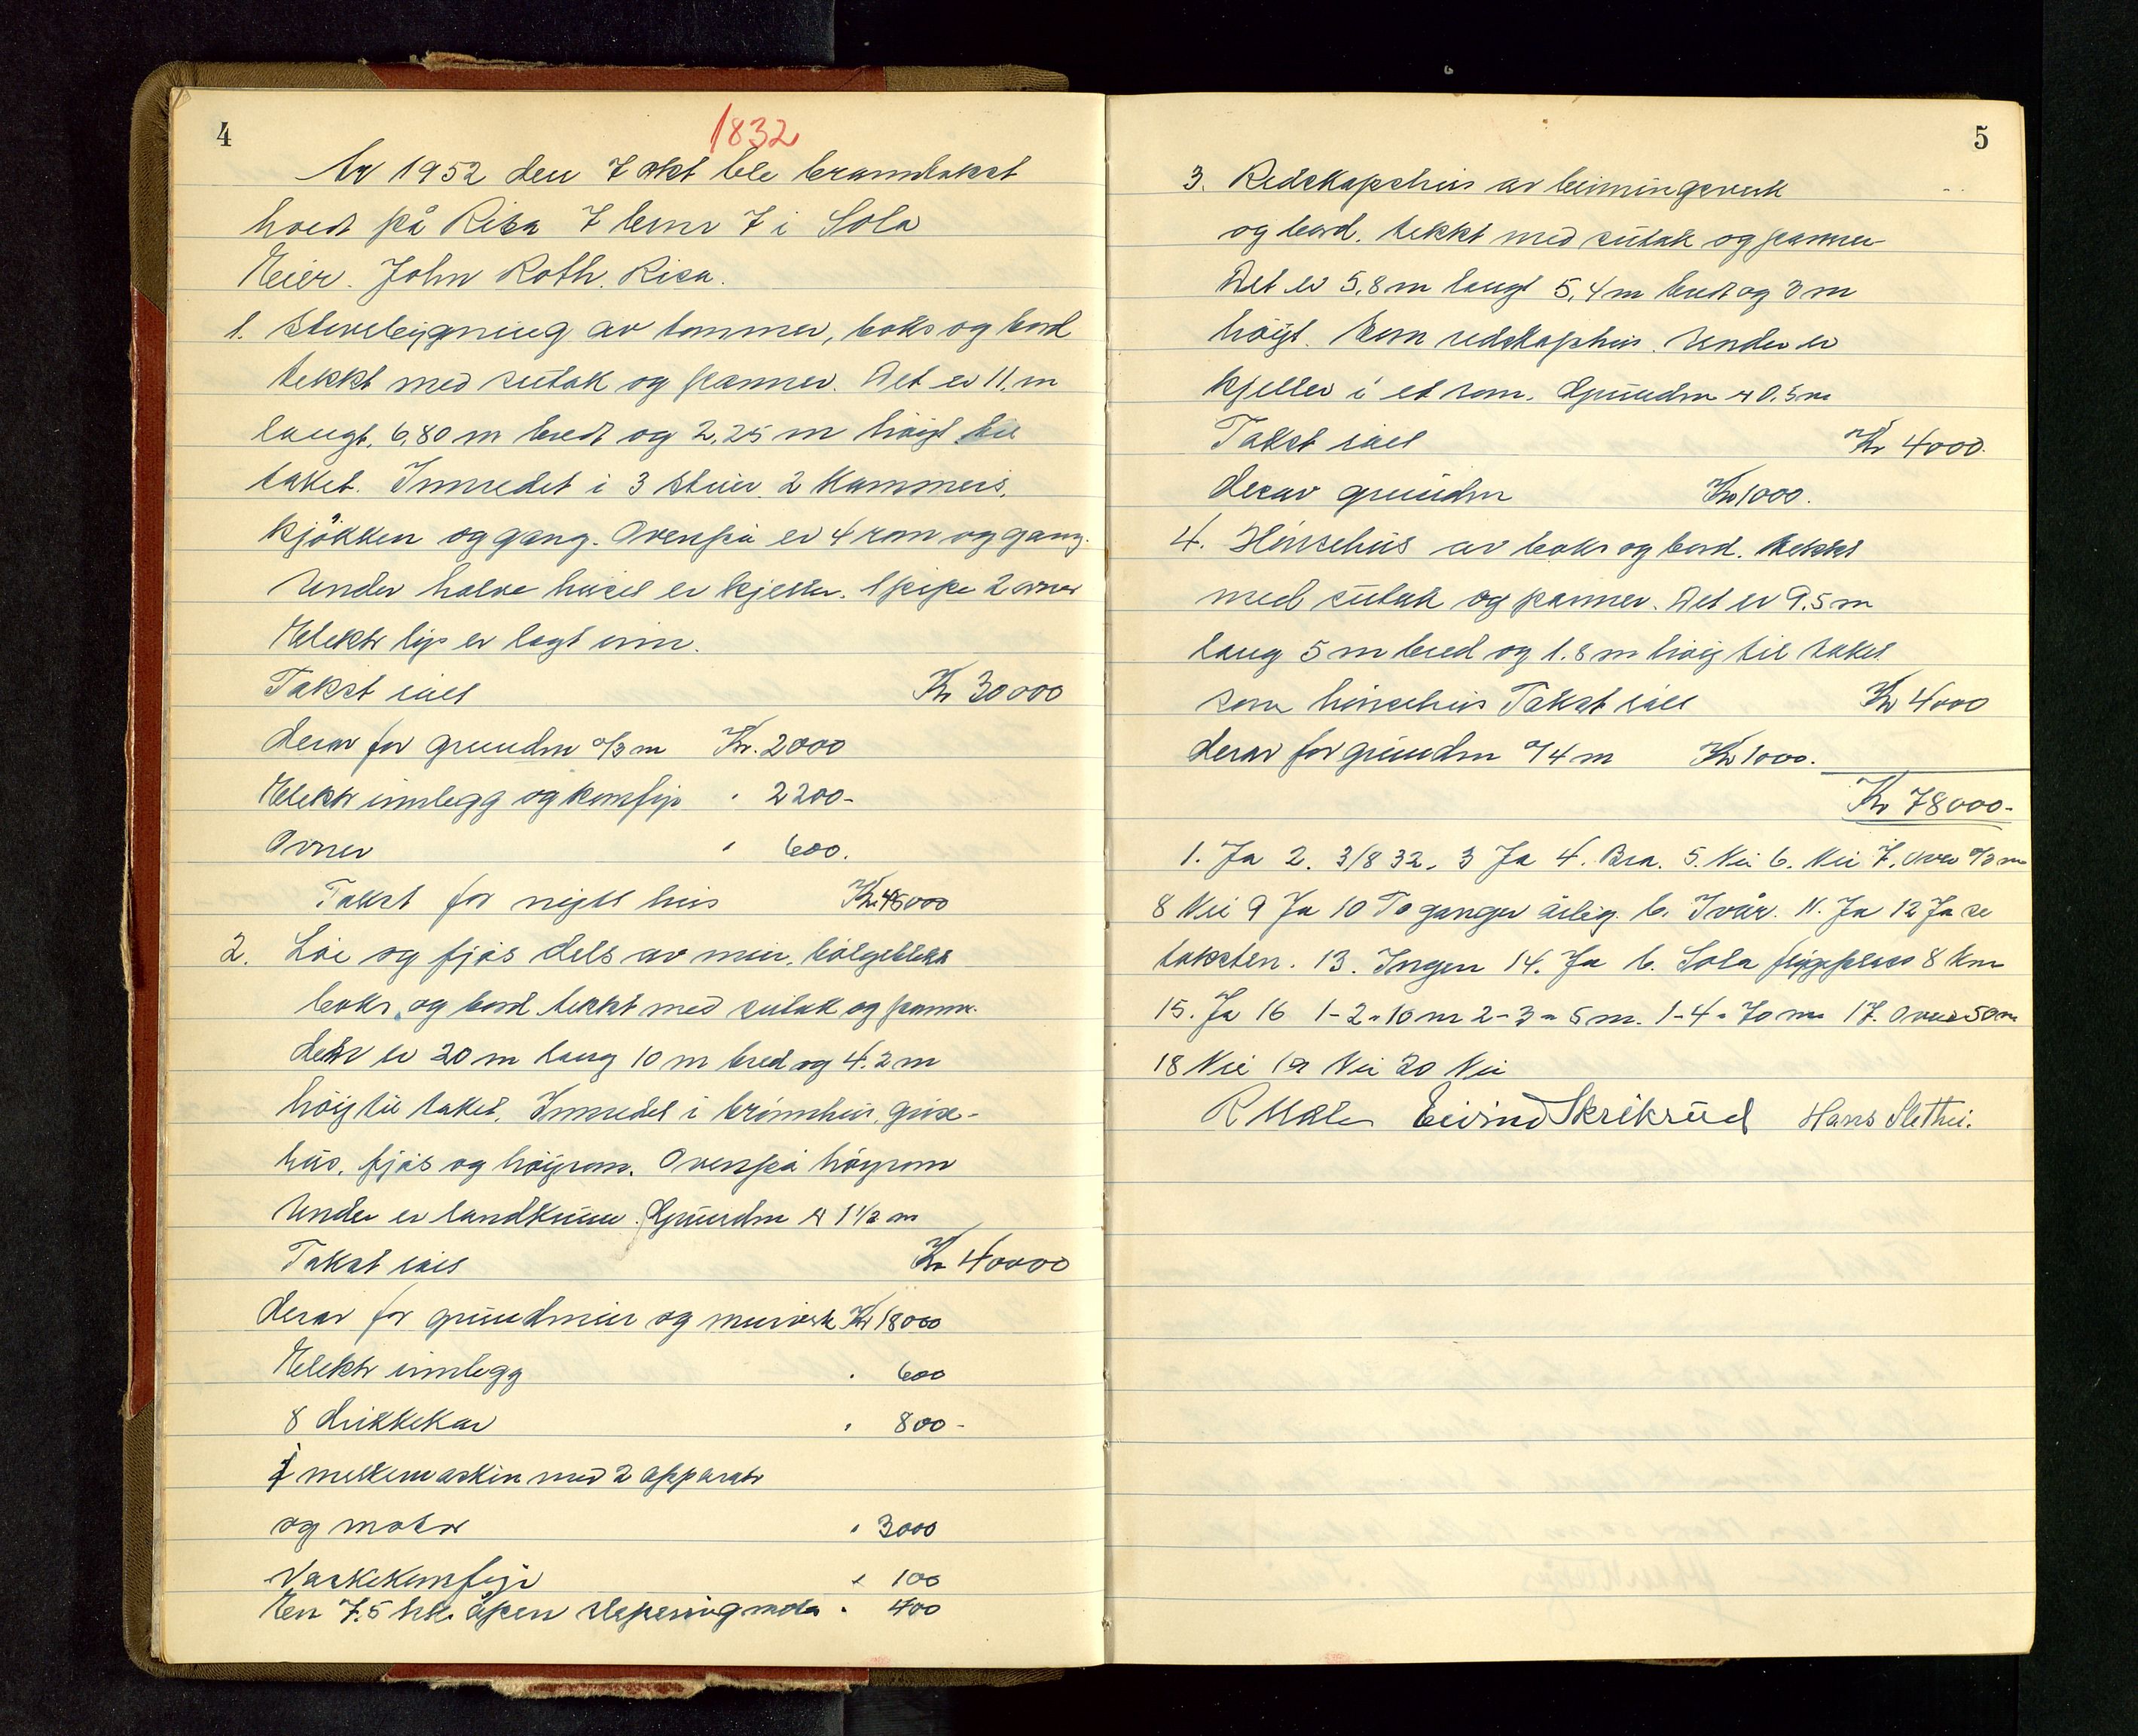 4
1832
År 1952 den 7 okt ble branntakst
holdt på Risa 7 brnr 7 i Sola
Eeier. John Roth. Risa.
1. Stuebygning av tommer, boks og bord
tekkt med sutak og panner. Det er 11, m
langt, 6,80 m bredt og 2,25 m høigt til
taket. Innredet i 3 stuer. 2 Kammers,
kjökken og gang. Ovenpå er 4 rom og gang.
Under halve huset er kjeller. 1 pipe 2 ovner
Elektr lys er lagt inn.
Takst ialt Kr 30000
derav for grundm a/3 m Kr. 2000
Elektr innlegg og komfyr " 2200-
Ovner " 600.
Takst for nytt hus Kr. 45000
2. Löe og fjös dels av mur, bölgeblekk
boks, og bord tekkt med sutak og panner.
dette er 20 m lang 10 m bred og 4.2 m
høig til taket. Innredet i brönnhus, grise-
hus, fjös og höyrom. Ovenpå höyrom
Under er landkum. Grundm a 1 1/2 m
Takst ialt Kr 40000
derav for grundmur og murverk Kr 18000
Elektr innlegg " 600
8 drikkekar " 800-
1 melkemaskin med 2 apparatr
og motor " 3000
Vaskekomfyr " 100
En 7.5 hk. åpen slepering motor " 400
5
3. Redskapshus av binningsverk
og bord. tekkt med sutak og panner
Det er 5,8 m langt 5,4 m bredt og 3 m
høigt. Som redskaphus. Under er
kjeller i et rom. Grundm a 0.5 m
Takst ialt Kr 4000.
derav grundm Kr 1000.
4. Hönsehus av boks og bord. tekkt
med sutak og panner. Det er 9.5 m
lang 5 m bred og 1.8 m høig til taket
som hönsehus Takst ialt Kr 4000
derav for grundm a/4 m Kr 1000.
Kr 78000-
1. Ja 2. 3/8 32. 3 Ja 4. Bra. 5. Nei 6. Nei 7. Over a/3 m
8 Nei 9 Ja 10 To ganger årlig. b. I vår. 11. Ja 12 Ja se
taksten. 13. Ingen 14. Ja b. Sola flyplass 8 km
15. Ja 16 1-2 = 10 m 2-3 = 5 m. 1-4 = 70 m 17. Over 50 m
18 Nei 19 Nei 20 Nei
Eivind Skrikrud Hans Slethei.